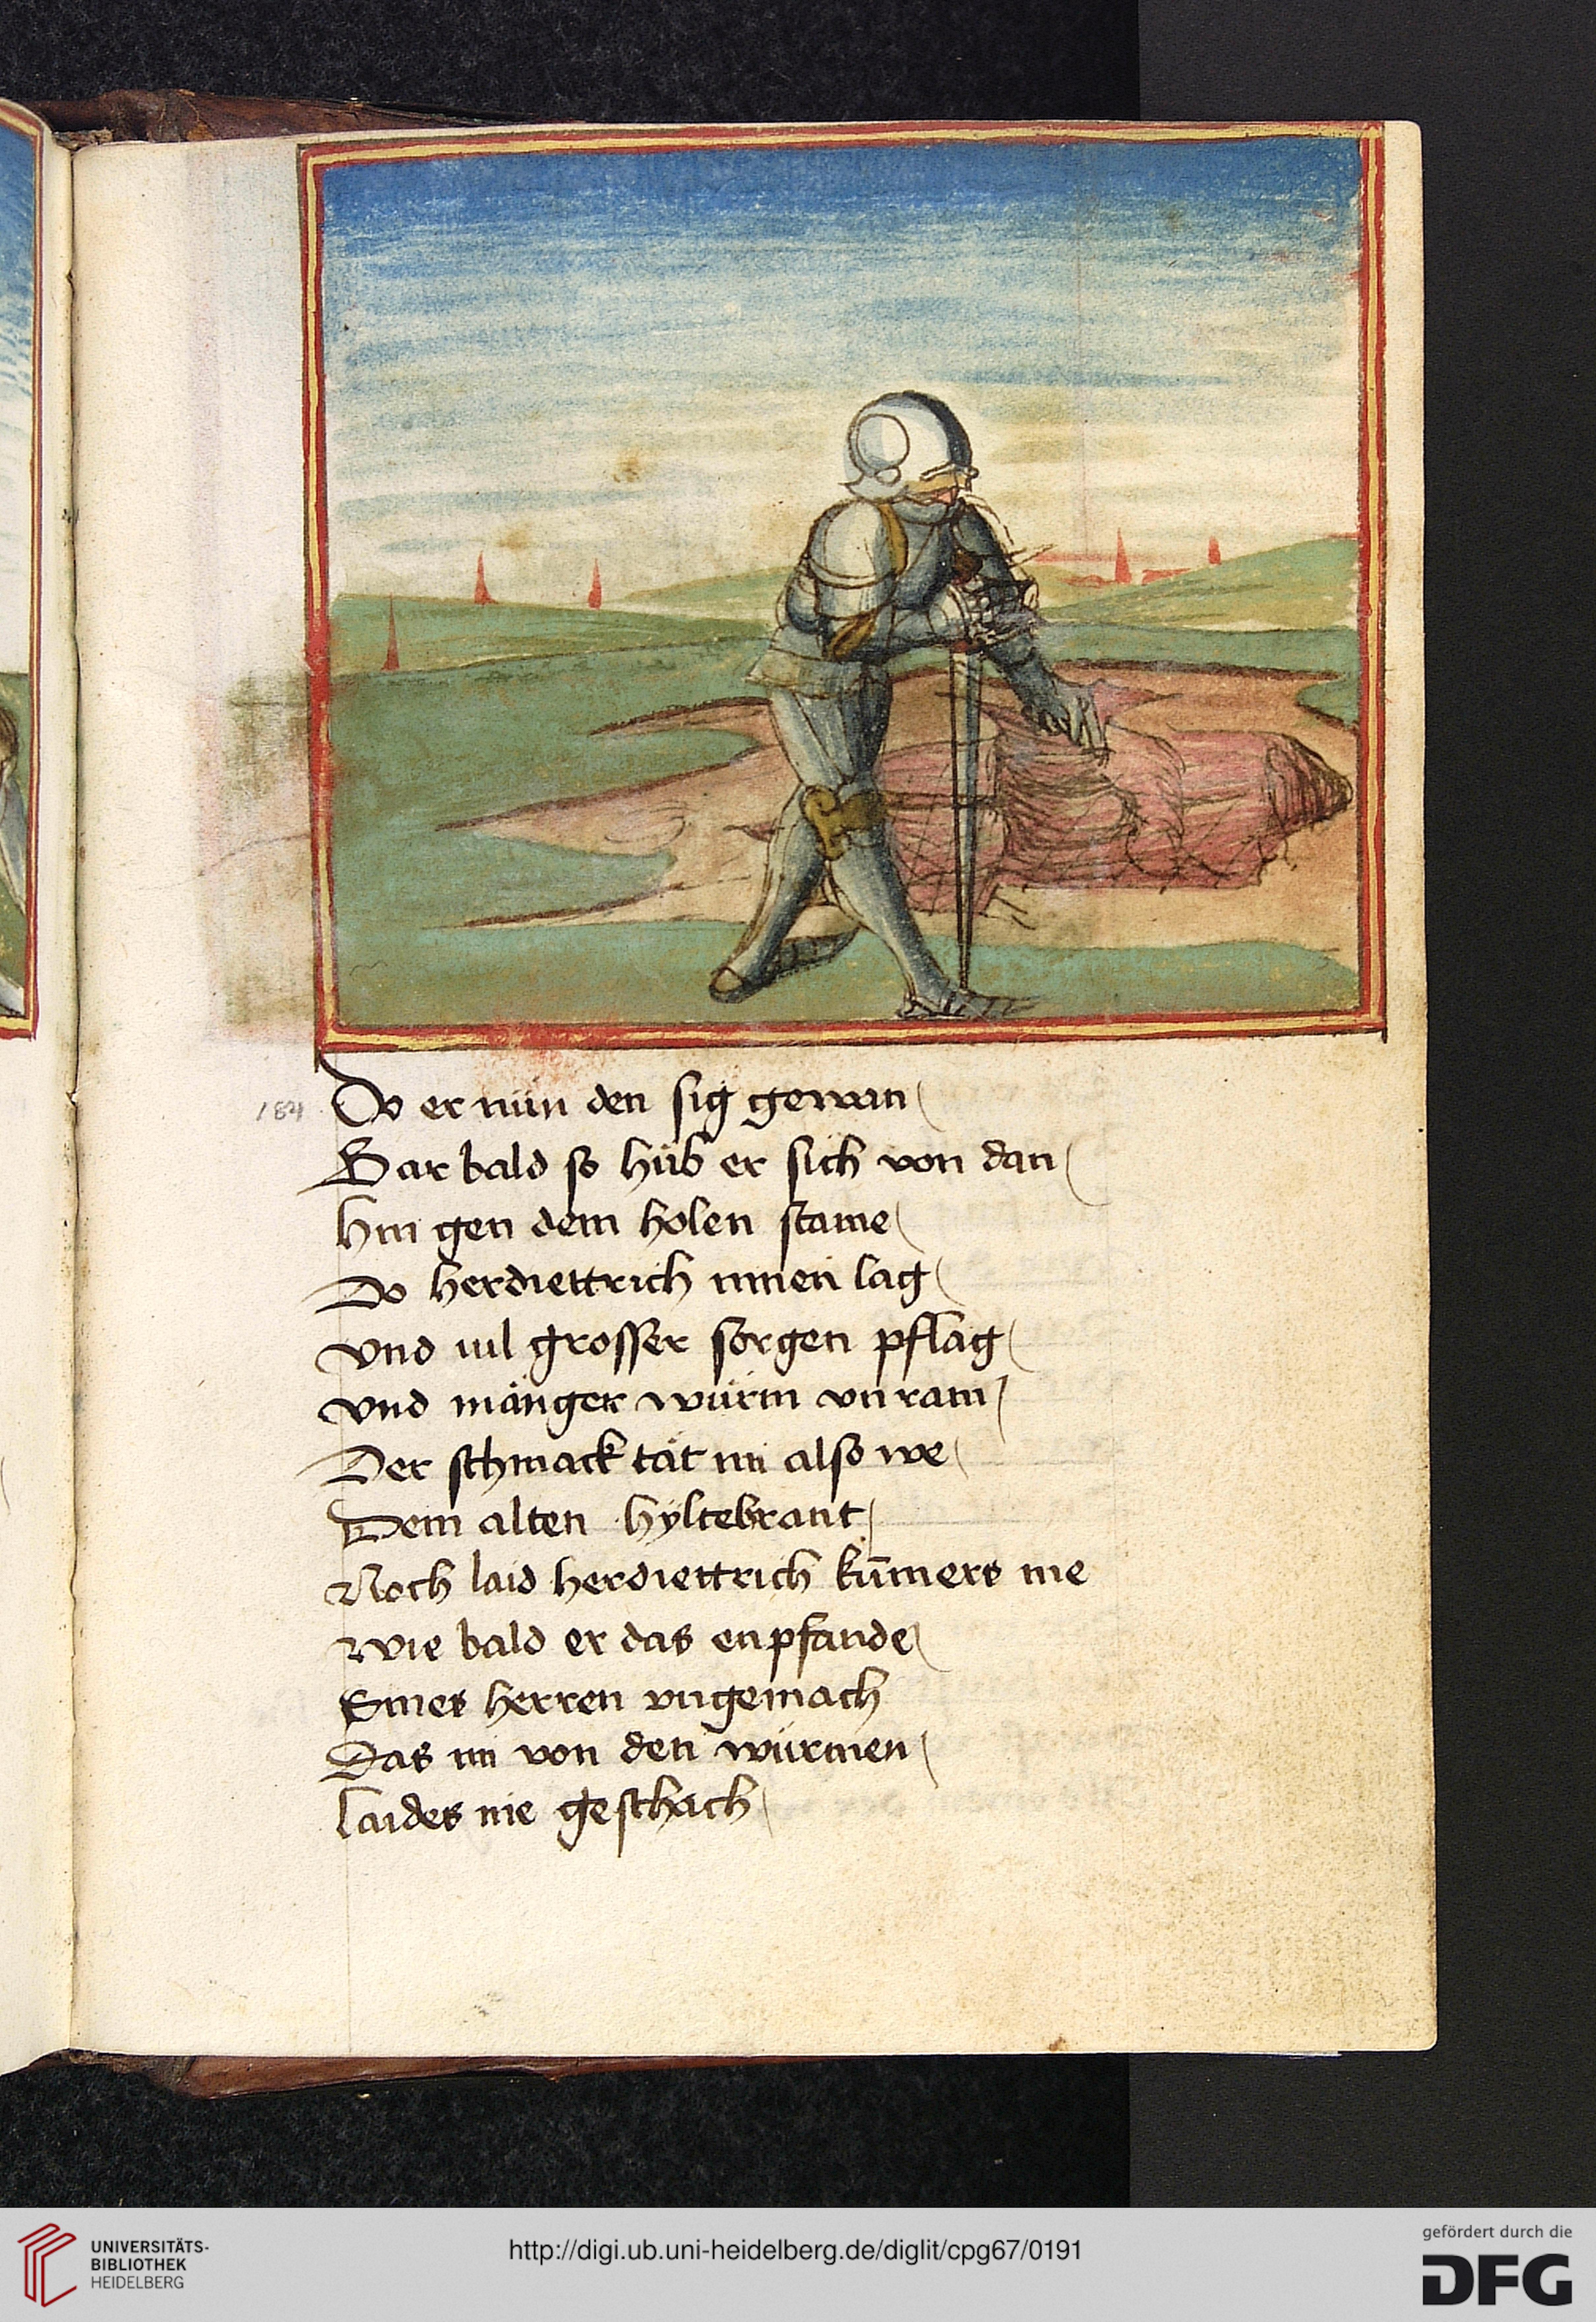 184
Do er nün den sig gewan
Gar bald so hüb er sich von dan
Hin gen dem holen stame
Do herdiettrich innen lag
Vnd uil grosser sorgen pflag
Vnd mänger würm vnram
Der schmack tät im also we
Dem alten hyltebrant
Noch laid herdiettrich kūmers me
Wie bald er das enpfande
Sines herren vngemach
Das im von den würmen
Laides nie geschach
UNIVERSITÄTS-
BIBLIOTHEK
HEIDELBERG
http://digi.ub.uni-heidelberg.de/diglit/cpg67/0191
gefördert durch die
DFG